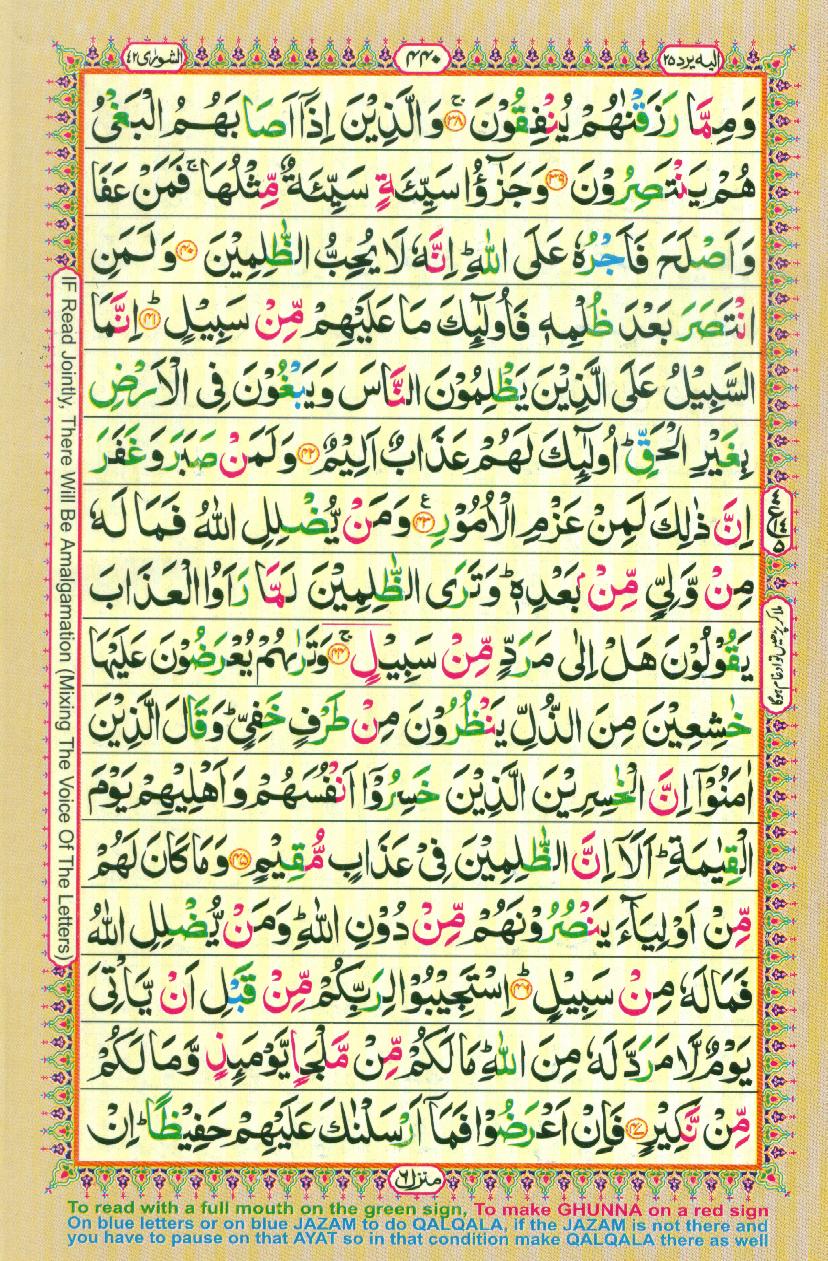 الیه یرد ۲۵
۴۴۰
الشورٰی ۴۲
وَمِمَّا رَزَقْنٰهُمْ يُنْفِقُوْنَ ۚ﴿۳۸﴾ وَالَّذِيْنَ اِذَاۤ اَصَابَهُمُ الْبَغْيُ
هُمْ يَنْتَصِرُوْنَ ﴿۳۹﴾ وَجَزٰٓؤُا سَيِّئَةٍ سَيِّئَةٌ مِّثْلُهَا ۚ فَمَنْ عَفَا
وَاَصْلَحَ فَاَجْرُهٗ عَلَى اللّٰهِ ؕ اِنَّهٗ لَا يُحِبُّ الظّٰلِمِيْنَ ﴿۴۰﴾ وَلَمَنِ
انْتَصَرَ بَعْدَ ظُلْمِهٖ فَاُولٰٓئِكَ مَا عَلَيْهِمْ مِّنْ سَبِيْلٍ ؕ﴿۴۱﴾ اِنَّمَا
السَّبِيْلُ عَلَى الَّذِيْنَ يَظْلِمُوْنَ النَّاسَ وَيَبْغُوْنَ فِى الْاَرْضِ
بِغَيْرِ الْحَقِّ ؕ اُولٰٓئِكَ لَهُمْ عَذَابٌ اَلِيْمٌ ﴿۴۲﴾ وَلَمَنْ صَبَرَ وَغَفَرَ
اِنَّ ذٰلِكَ لَمِنْ عَزْمِ الْاُمُوْرِ ﴿۴۳﴾ۧ وَمَنْ يُّضْلِلِ اللّٰهُ فَمَا لَهٗ
مِنْ وَّلِيٍّ مِّنْۢ بَعْدِهٖ ؕ وَتَرَى الظّٰلِمِيْنَ لَمَّا رَاَوُا الْعَذَابَ
يَقُوْلُوْنَ هَلْ اِلٰى مَرَدٍّ مِّنْ سَبِيْلٍ ۚ﴿۴۴﴾ وَتَرٰىهُمْ يُعْرَضُوْنَ عَلَيْهَا
خٰشِعِيْنَ مِنَ الذُّلِّ يَنْظُرُوْنَ مِنْ طَرْفٍ خَفِيٍّ ؕ وَقَالَ الَّذِيْنَ
اٰمَنُوْۤا اِنَّ الْخٰسِرِيْنَ الَّذِيْنَ خَسِرُوْۤا اَنْفُسَهُمْ وَاَهْلِيْهِمْ يَوْمَ
الْقِيٰمَةِ ؕ اَلَاۤ اِنَّ الظّٰلِمِيْنَ فِيْ عَذَابٍ مُّقِيْمٍ ﴿۴۵﴾ وَمَا كَانَ لَهُمْ
مِّنْ اَوْلِيَآءَ يَنْصُرُوْنَهُمْ مِّنْ دُوْنِ اللّٰهِ ؕ وَمَنْ يُّضْلِلِ اللّٰهُ
فَمَا لَهٗ مِنْ سَبِيْلٍ ؕ﴿۴۶﴾ اِسْتَجِيْبُوْا لِرَبِّكُمْ مِّنْ قَبْلِ اَنْ يَّاْتِىَ
يَوْمٌ لَّا مَرَدَّ لَهٗ مِنَ اللّٰهِ ؕ مَا لَكُمْ مِّنْ مَّلْجَاٍ يَّوْمَئِذٍ وَّمَا لَكُمْ
مِّنْ نَّكِيْرٍ ﴿۴۷﴾ فَاِنْ اَعْرَضُوْا فَمَاۤ اَرْسَلْنٰكَ عَلَيْهِمْ حَفِيْظًا ؕ اِنْ
منزل ۶
IF Read Jointly, There Will Be Amalgamation (Mixing The Voice Of The Letters)
To read with a full mouth on the green sign, To make GHUNNA on a red sign
On blue letters or on blue JAZAM to do QALQALA, if the JAZAM is not there and
you have to pause on that AYAT so in that condition make QALQALA there as well